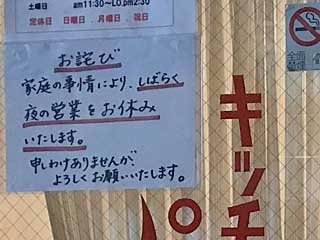 土曜日 am11:30~LO.pm2:30
定休日 日曜日.月曜日.祝日
お詫び
家庭の事情により、しばらく
夜の営業をお休み
いたします。
申しわけありませんが、
よろしくお願いいたします。
キッチ
パ